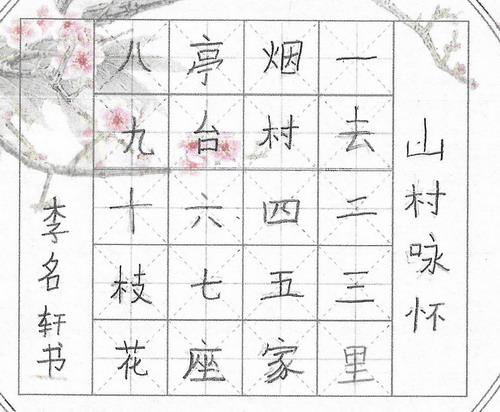 山村咏怀
一去二三里
烟村四五家
亭台六七座
八九十枝花
李名轩书